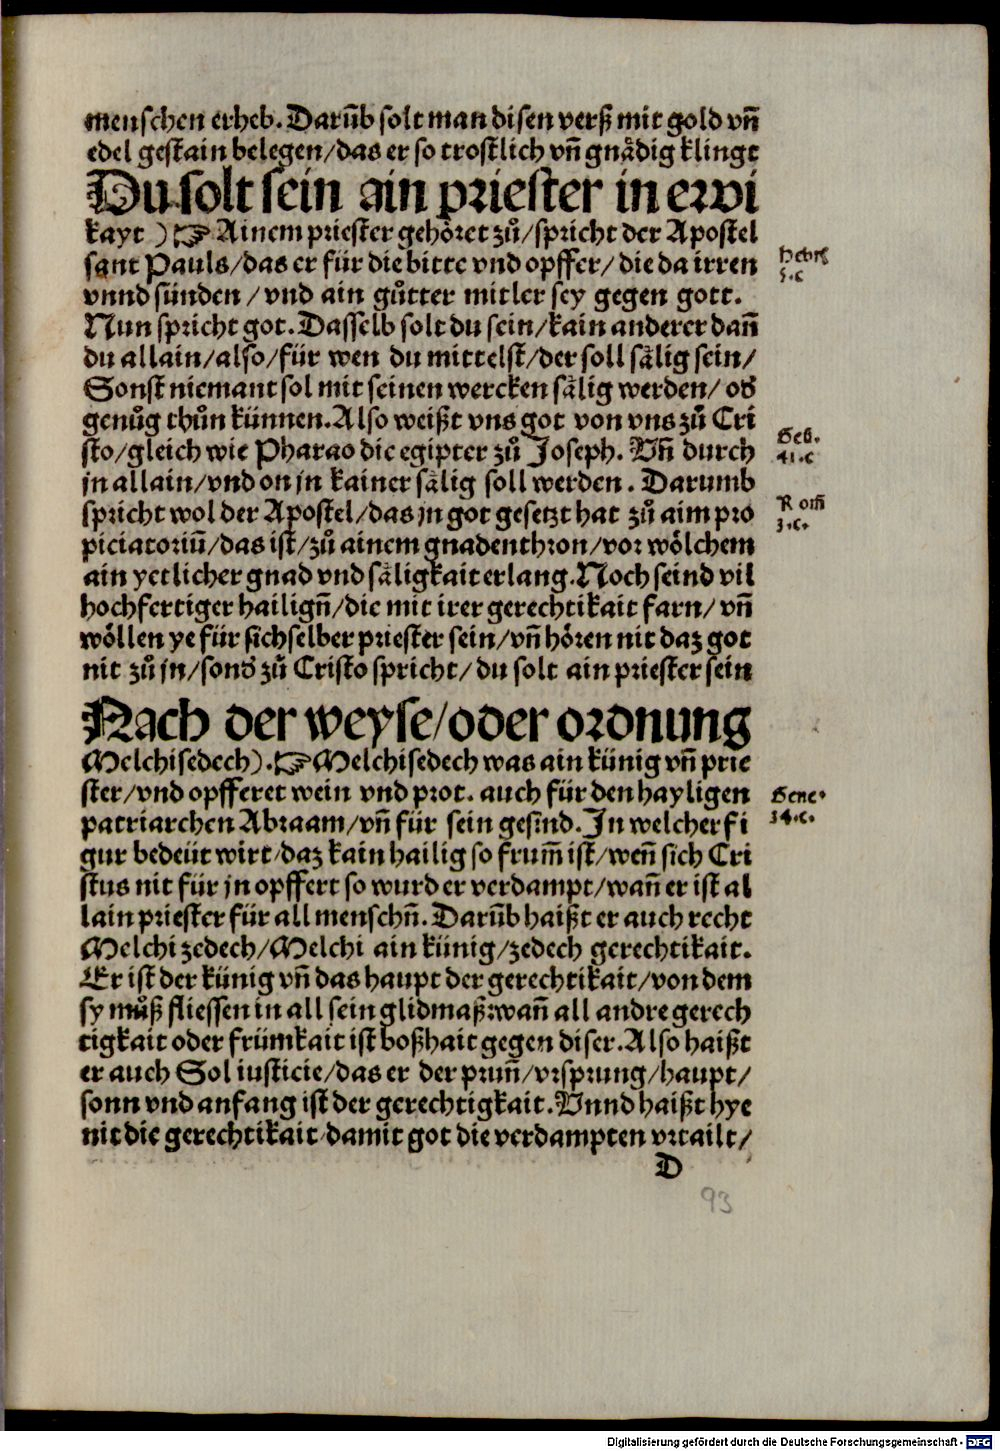 menschen erheb. Darũb solt man disen verß mit gold vñ
edel gestain belegen/das er so trostlich vñ gnådig klingt
Du solt sein ain priester in ewi
kayt ) ☞ Ainem priester gehöret zů/spricht der Apostel
sant Pauls/das er für die bitte vnd opffer/ die da irren
Hebre
5.c
vnnd sünden /vnd ain gůtter mitler sey gegen gott.
Nun spricht got. Dasselb solt du sein/kain anderer dañ
du allain/also/für wen du mittelst/der soll sålig sein/
Sonst niemant sol mit seinen wercken sålig werden/ od
genůg thůn künnen. Also weißt vns got von vns zů Cri
sto/gleich wie Pharao die egipter zů Joseph. Vñ durch
Geb.
41.c
jn allain/vnd on jn kainer sålig soll werden. Darumb
spricht wol der Apostel/das jn got gesetzt hat zů aim pro
Rom̃
3.c.
piciatoriũ/das ist/zů ainem gnadenthron/vor wölchem
ain yetlicher gnad vnd såligkait erlang. Noch seind vil
hochfertiger hailigñ/die mit irer gerechtikait farn/ vñ
wöllen ye für sichselber priester sein/vñ hören nit daz got
nit zů jn/sond zů Cristo spricht/ du solt ain priester sein
Nach der weyse/oder ordnung
Melchisedech). ☞ Melchisedech was ain künig vñ prie
ster/vnd opfferet wein vnd prot. auch für den hayligen
Gene.
14.c.
patriarchen Abraam/vñ für sein gesind. In welcher fi
gur bedeüt wirt/daz kain hailig so frum̃ ist/weñ sich Cri
stus nit für jn opffert so wurd er verdampt/wañ er ist al
lain priester für all menschñ. Darũb haißt er auch recht
Melchizedech/Melchi ain künig/zedech gerechtikait.
Er ist der künig vñ das haupt der gerechtikait/von dem
sy můß fliessen in all sein glidmaß: wañ all andre gerech
tigkait oder frümkait ist boßhait gegen diser. Also haißt
er auch Sol iusticie/das er der prun̄/vrsprung/haupt/
sonn vnd anfang ist der gerechtigkait. Vnnd haißt hye
nit die gerechtikait/damit got die verdampten vrtailt/
D
93
Digitalisierung gefördert durch die Deutsche Forschungsgemeinschaft - DFG